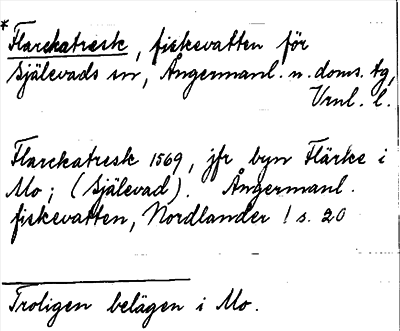 *Flarckatresk, fiskevatten för
Själevads sn, Ångermanl. n. doms. tg,
Vrnl. l.
Flarckatresk 1569, jfr byn Flärke i
Mo; (Själevad). Ångermanl.
fiskevatten, Nordlander 1 s. 20
Troligen belägen i Mo.